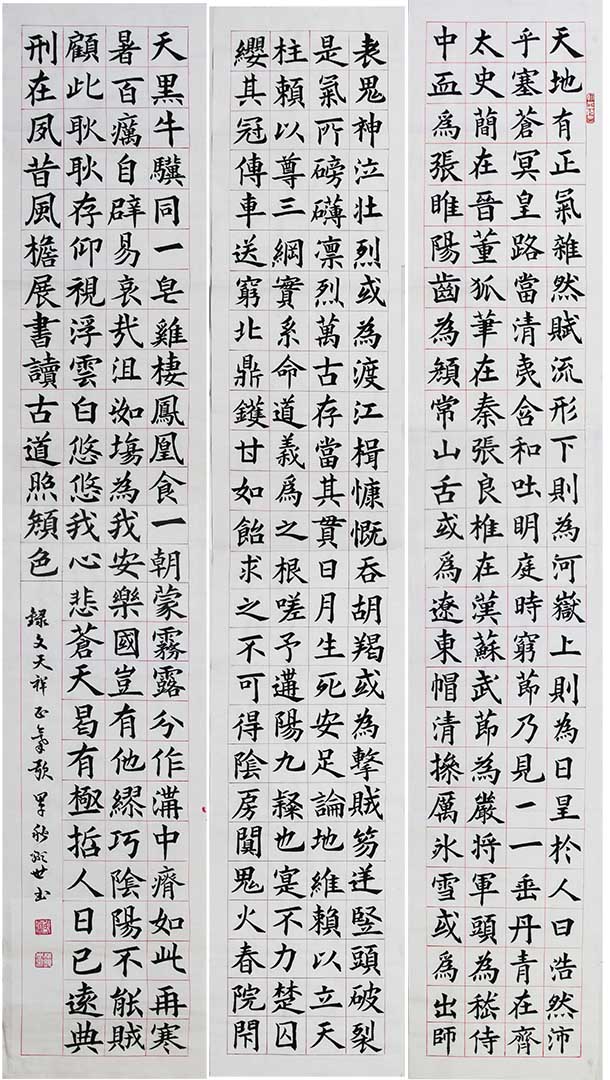 天地有正氣雜然賦流形下則為河嶽上則為日星於人曰浩然沛
乎塞蒼冥皇路當清夷含和吐明庭時窮節乃見一一垂丹青在齊
太史簡在晉董狐筆在秦張良椎在漢蘇武節為嚴將軍頭為嵇侍
中血爲張睢陽齒為顏常山舌或爲遼東帽清操厲冰雪或爲出師
表鬼神泣壯烈或為渡江楫慷慨吞胡羯或為擊賊笏逆豎頭破裂
是氣所磅礴凜烈萬古存當其貫日月生死安足論地維賴以立天
柱賴以尊三綱實系命道義爲之根嗟予遘陽九隸也寔不力楚囚
纓其冠傳車送窮北鼎鑊甘如飴求之不可得陰房闃鬼火春院閉
天黑牛驥同一皂雞棲鳳凰食一朝蒙霧露分作溝中瘠如此再寒
暑百癘自辟易哀哉沮洳場為我安樂國豈有他繆巧陰陽不能賊
顧此耿耿存仰視浮雲白悠悠我心悲蒼天曷有極哲人日已遠典
刑在夙昔風檐展書讀古道照顏色
錄文天祥正氣歌 世書